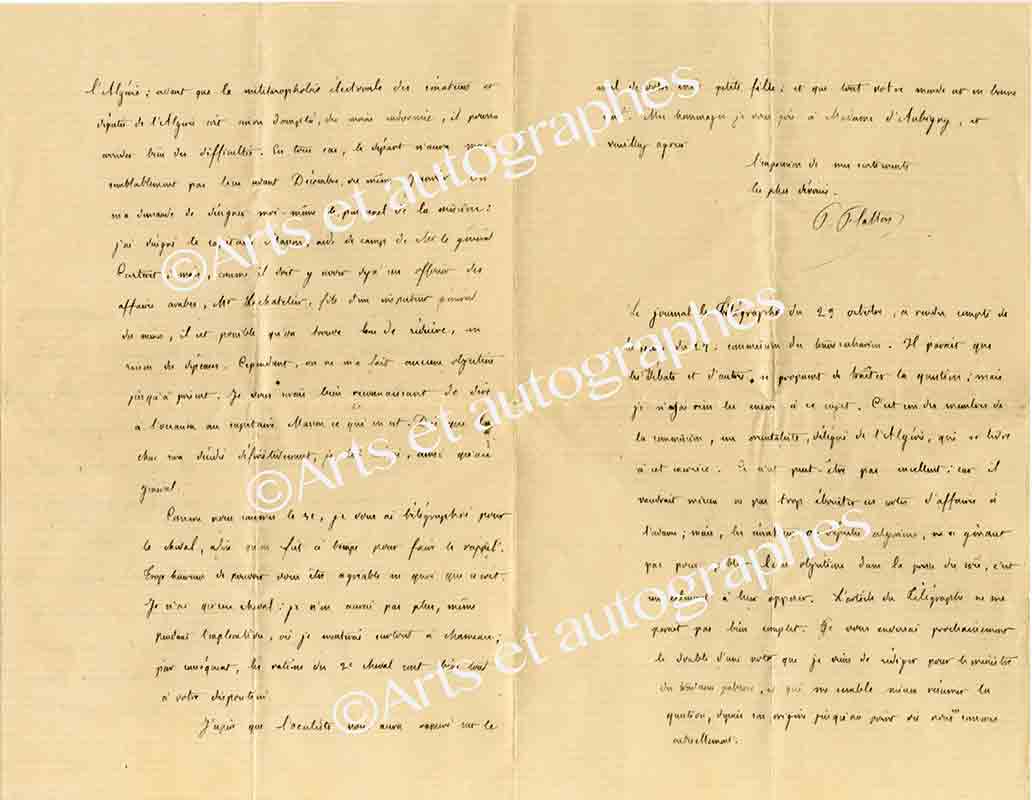 l'Algérie ; avant que la militarophobie électorale des sénateurs et
députés de l'Algérie soit, non domptée, mais endormie, il pourra
arriver bien des difficultés. En tous cas, le départ n'aura vrai-
semblablement pas lieu avant Décembre, ou même Janvier. On
m'a demandé de désigner moi-même le personnel de la mission :
j'ai désigné le capitaine Masson, aide de camp de Mr le général
mais, comme il doit y avoir déjà un officier des
affaires arabes, Mr Le Chatelier, fils d'un inspecteur général
des mines, il est possible qu'on trouve bon de réduire, en
raison de dépenses. Cependant, on ne m'a fait aucune objection
jusqu'à présent. Je vous serais bien reconnaissant de dire
à l'occasion au capitaine Masson ce qu'il en est. Dès que la
chose sera décidée définitivement, je lui, ainsi qu'au
général.
Comme nous sommes le 31, je vous ai télégraphié pour
le cheval, afin qu'on fût à temps pour faire le rappel.
Trop heureux de pouvoir vous être agréable en quoi que ce soit.
Je n'ai qu'un cheval : je n'en aurai pas plus, même
pendant l'exploration, où je monterai surtout à chameau ;
par conséquent, les rations du 2e cheval sont bien tout
à votre disposition.
J'espère que l'oculiste vous aura rassuré sur le
œil de votre petite fille ; et que tout votre monde est en bonne
santé. Mes hommages je vous prie à Madame d'Aubigny, et
veuillez agréer
l'expression de mes sentiments
les plus dévoués.
P. Flatters
Le journal le Télégraphe du 29 octobre, a rendu compte de
la séance du 27 : commission du transsaharien. Il paraît que
les Débats et d'autres, se proposent de traiter la question ; mais
je n'ai rien lu encore à ce sujet. C'est un des membres de
la commission, un orientaliste, délégué de l'Algérie, qui se livre
à cet exercice. Ce n'est peut-être pas excellent ; car il
vaudrait mieux ne pas trop ébruiter ces sortes d'affaires à
l'avance ; mais, les sénateurs et députés algériens, ne se gênant
pas pour publier leurs objections dans la presse du, c'est
un élément à leur opposer. L'article du Télégraphe ne me
paraît pas bien complet. Je vous enverrai prochainement
le double d'une note que je viens de rédiger pour le ministre
des travaux publics, et qui me semble mieux résumer la
question, depuis son origine jusqu'au point où nous en sommes
actuellement.
©Arts et autographes
©Arts et autographes
©Arts et autographes